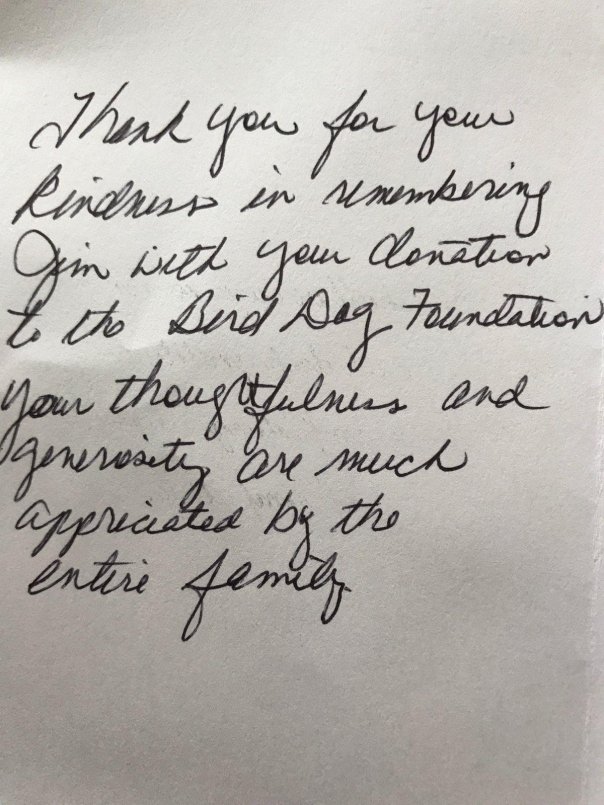 Thank you for your
kindness in remembering
Jim with your donation
to the Bird Dog Foundation
your thoughtfulness and
generosity are much
appreciated by the
entire family